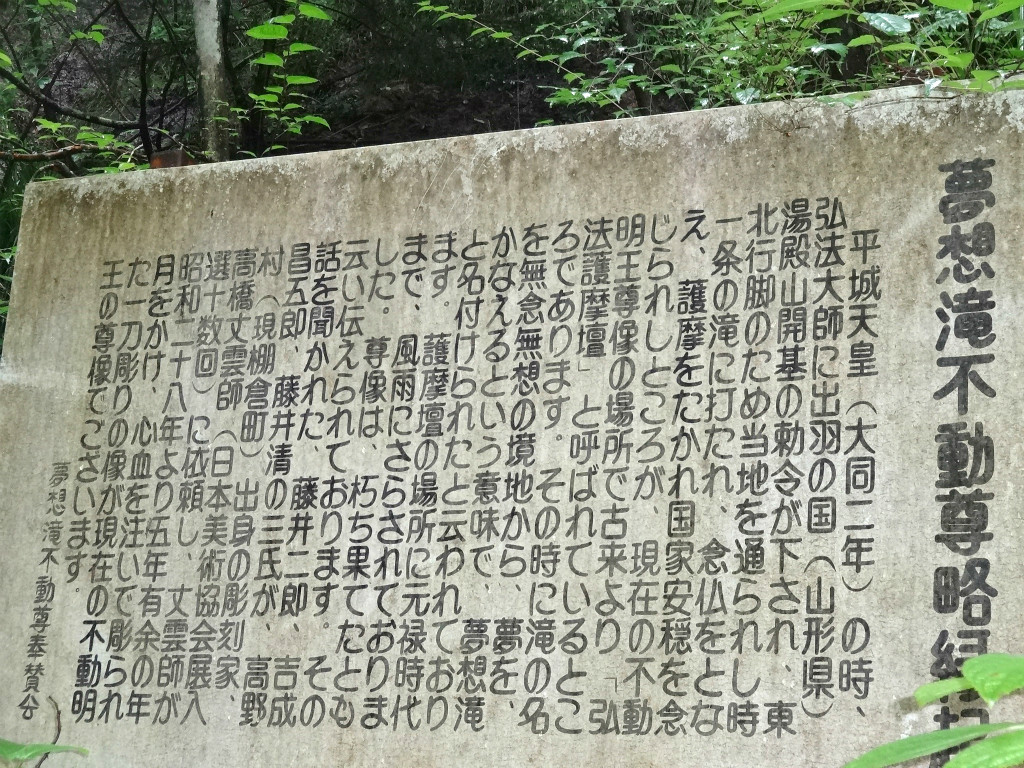 夢想滝不動尊略縁起
平城天皇(大同二年)の時、
弘法大師に出羽の国(山形県)
湯殿山開基の勅令が下され、東
北行脚のため当地を通られし時
一条の滝に打たれ、念仏をとな
え、護摩をたかれ国家安穏を念
じられしところが、現在の不動
明王尊像の場所で古来より「弘
法護摩壇」と呼ばれているとこ
ろであります。その時に滝の名
を無念無想の境地から、夢を、
かなえるという意味で、夢想滝
と名付けられたと云われており
ます。護摩壇の場所に元禄時代
まで、風雨にさらされておりま
した。尊像は、朽ち果てたとも
云い伝えられております。その
話を聞かれた、藤井二郎、吉成
昌五郎、藤井清の三氏が、高野
村(現棚倉町)出身の彫刻家、
高橋丈雲師(日本美術協会展入
選十数回)に依頼し、丈雲師が
昭和二十八年より五年有余の年
月をかけ、心血を注いで彫られ
た一刀彫りの像が現在の不動明
王の尊像でございます。
夢想滝不動尊奉賛会